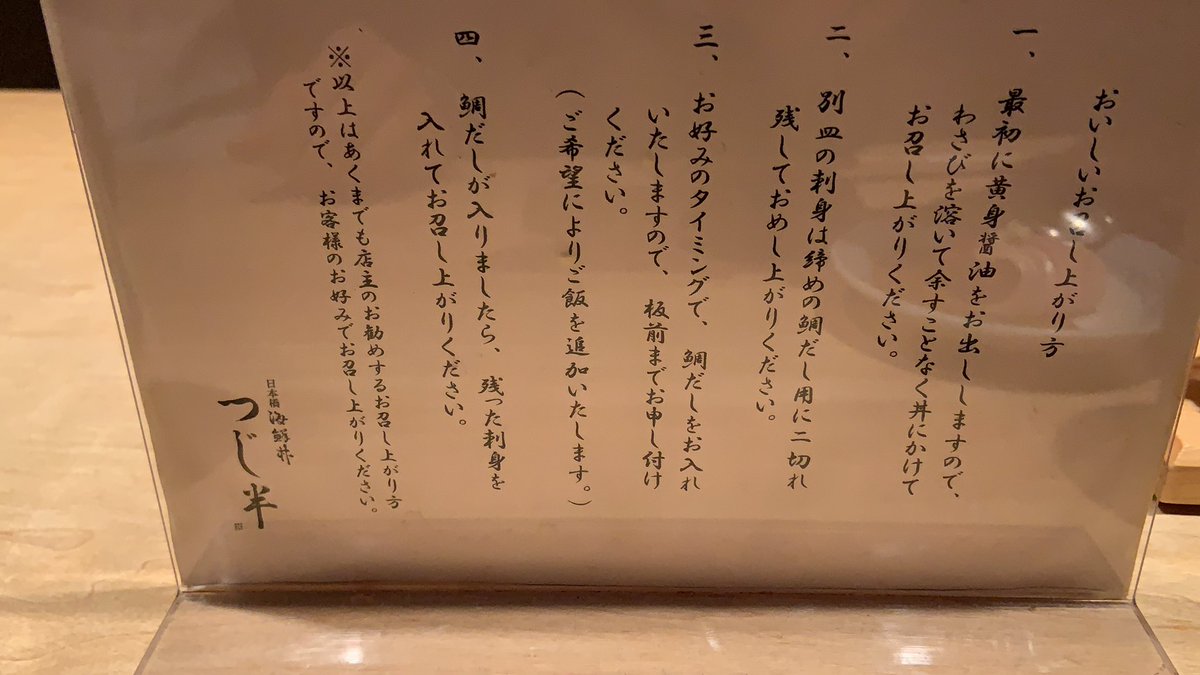 おいしいお召し上がり方
一、最初に黄身醤油をお出ししますので、
わさびを溶いて余すことなく丼にかけて
お召し上がりください。
二、別皿の刺身は締めの鯛だし用に二切れ
残しておめし上がりください。
三、お好みのタイミングで、鯛だしをお入れ
いたしますので、板前までお申し付け
ください。
（ご希望によりご飯を追加いたします。）
四、鯛だしが入りましたら、残った刺身を
入れてお召し上がりください。
※以上はあくまでも店主のお勧めするお召し上がり方
ですので、お客様のお好みでお召し上がりください。
日本橋 海鮮丼
つじ半